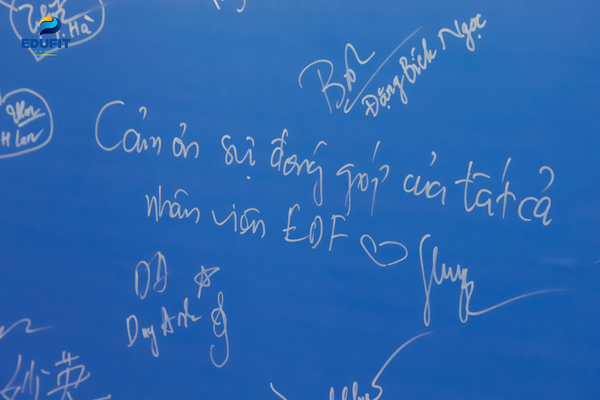 EDUFIT
T. Hà
Đặng Bích Ngọc
H Lan
Cảm ơn sự đóng góp của tất cả
nhân viên EDF ♡
DA ☆
Duy Anh
英